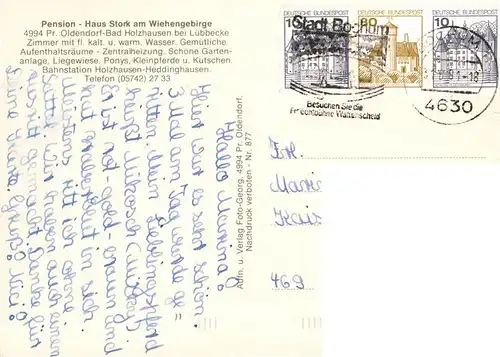 Pension - Haus Stork am Wiehengebirge
4994 Pr. Oldendorf-Bad Holzhausen bei Lübbecke
Zimmer mit fl. kalt. u. warm. Wasser. Gemütliche
Aufenthaltsräume - Zentralheizung. Schöne Garten-
anlage, Liegewiese. Ponys, Kleinpferde u. Kutschen.
Bahnstation Holzhausen-Heddinghausen.
Telefon (05742) 27 33
Hallo Martina!
Hier ist es sehr schön.
3 Mal am Tag wurde ge=
ritten. Mein Lieblingspferd
heißt Mikosch (Micky)
Er ist rot gold-braun und
hat in sich.
Meistens ritt ich ohne
Sattel. Wir haben auch einen
gemacht. Danke für
deine Karte. Gruß! Nici!
Aufn. u. Verlag Foto-Georg, 4994 Pr. Oldendorf.
Nachdruck verboten - Nr. 877
DEUTSCHE BUNDESPOST
10
DEUTSCHE BUNDESPOST
80
DEUTSCHE BUNDESPOST
10
Stadt Bochum
Besuchen Sie die
Freilichtbühne Wattenscheid
BOCHUM
4630
Frl.
Kais
469